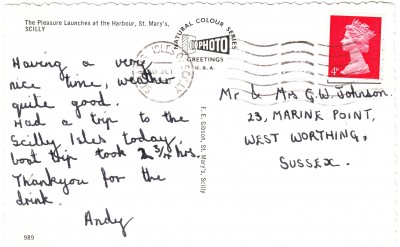 The Pleasure Launches at the Harbour, St. Mary's,
SCILLY
NATURAL COLOUR SERIES
PHOTO
GREETINGS
Having a very
nice time, weather
quite good.
Had a trip to the
Scilly Isles today,
boat trip took 2 3/4 hrs.
Thankyou for the
drink.
Andy
989
F. E. Gibson, St. Mary's, Scilly
4P
Mr & Mrs G.W. Johnson.
23, MARINE POINT,
WEST WORTHING,
SUSSEX.